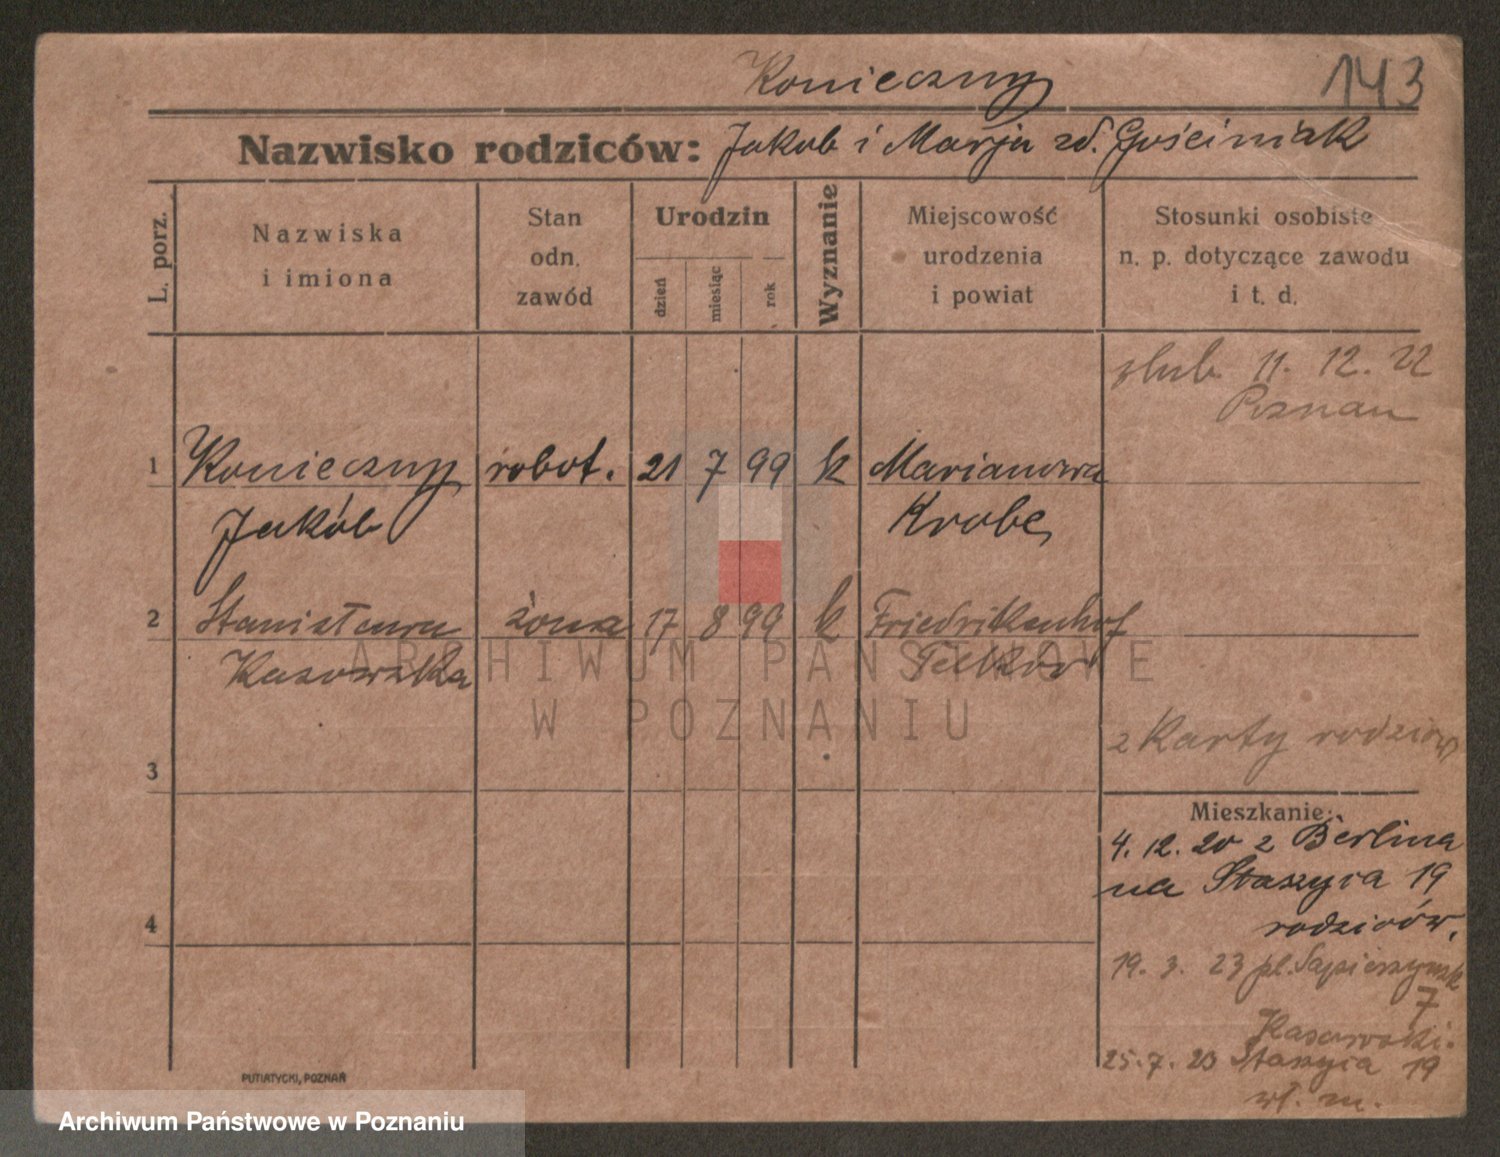 Konieczny
143
Nazwisko rodziców: Jakob i Marja zd. Gościniak
L. porz.
Nazwiska
i imiona
Stan
odn.
zawód
Urodzin
dzień
miesiąc
rok
Wyznanie
Miejscowość
urodzenia
i powiat
Stosunki osobiste
n. p. dotyczące zawodu
i t. d.
ślub 11. 12. 22
Poznań
1 Konieczny robot. 21 7 99 k Marianowa
Jakób Krobe
2 Stanisława żona 17 8 99 k Friedrikenhof
Kasowska
ARCHIWUM PAŃSTWOWE
W POZNANIU
z Karty rodziców
3
Mieszkanie:
4. 12. 20 z Berlina
na Staszyca 19
rodziców.
4
19. 3. 23 pl. Sapieszynsk
7
Kasowski.
25. 7. 23 Staszyca 19
wł. m.
PUTIATYCKI, POZNAŃ
Archiwum Państwowe w Poznaniu